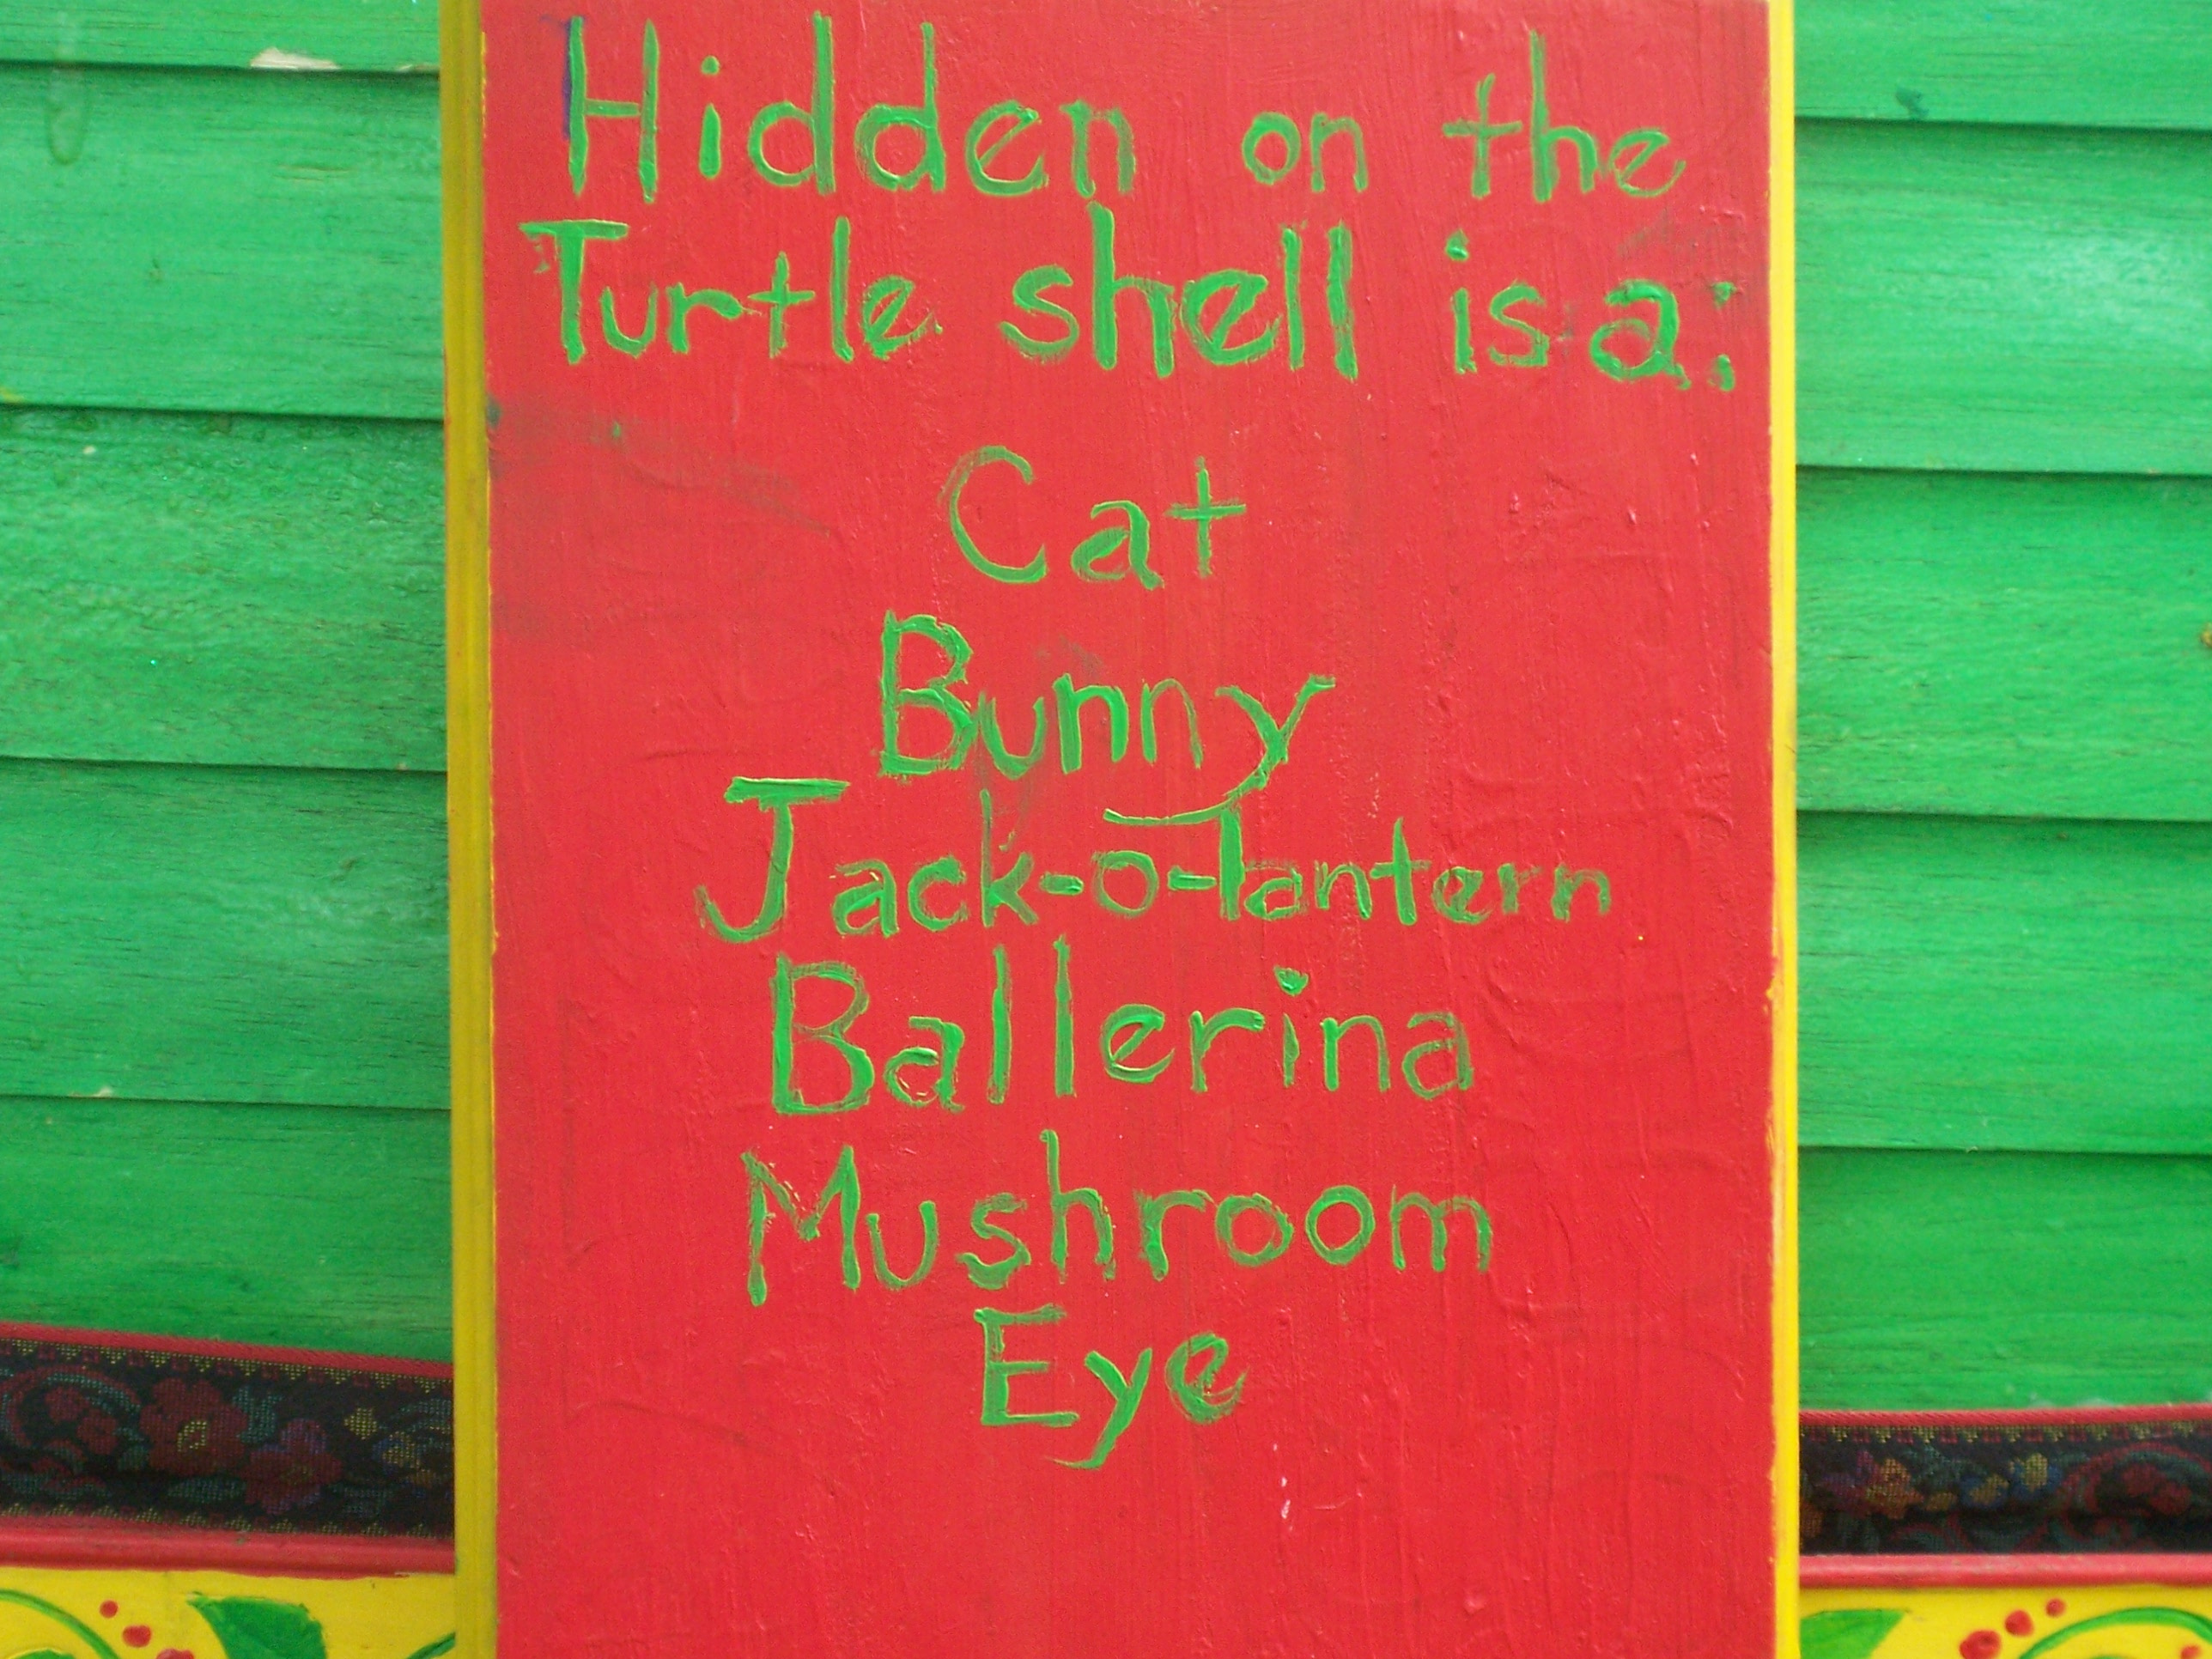 Hidden on the
Turtle shell is a:
Cat
Bunny
Jack-o-lantern
Ballerina
Mushroom
Eye